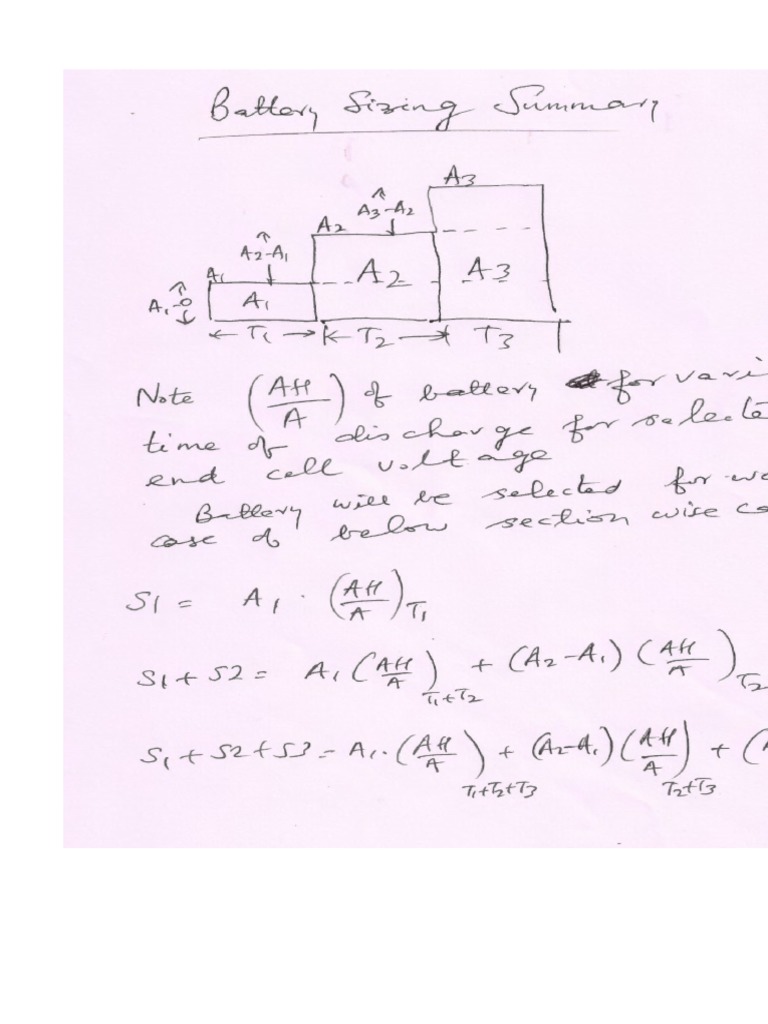 Battery Sizing Summary
A3
A3-A2
A2
A2-A1
A1
A2
A3
A1-0
A1
T1
T2
T3
Note (AH/A) of battery for vari
time of discharge for selecte
end cell voltage
Battery will be selected for wo
case of below section wise ca
S1 = A1 · (AH/A)T1
S1 + S2 = A1 (AH/A)T1+T2 + (A2-A1) (AH/A)T2
S1 + S2 + S3 = A1 · (AH/A)T1+T2+T3 + (A2-A1) (AH/A)T2+T3 + (A